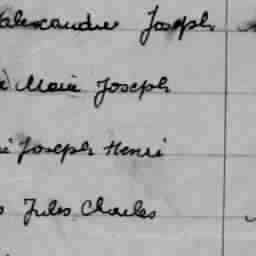 alexandre Joseph
Marie Joseph
Joseph Henri
Jules Charles